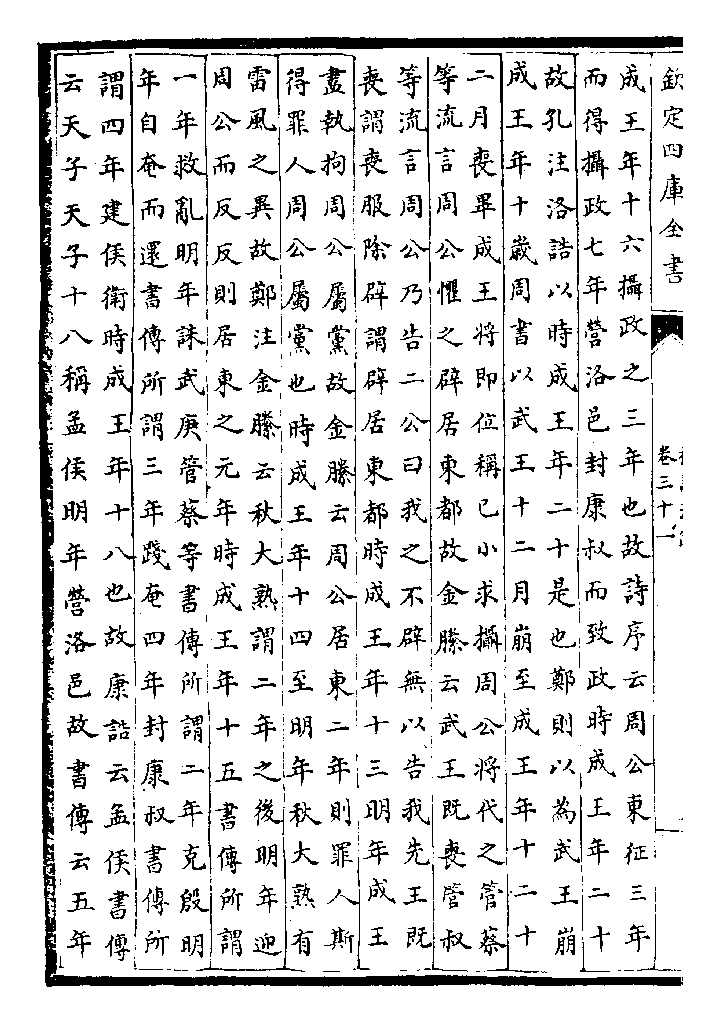 欽定四庫全書
卷三十一
成王年十六攝政之三年也故詩序云周公東征三年
而得攝政七年營洛邑封康叔而致政時成王年二十
故孔注洛誥以時成王年二十是也鄭則以為武王崩
成王年十歲周書以武王十二月崩至成王年十二十
二月喪畢成王將即位稱已小求攝周公將代之管蔡
等流言周公懼之辟居東都故金縢云武王既喪管叔
等流言周公乃告二公曰我之不辟無以告我先王既
喪謂喪服除辟謂辟居東都時成王年十三明年成王
盡執拘周公屬黨故金縢云周公居東二年則罪人斯
得罪人周公屬黨也時成王年十四至明年秋大熟有
雷風之異故鄭注金縢云秋大熟謂二年之後明年迎
周公而反反則居東之元年時成王年十五書傳所謂
一年救亂明年誅武庚管蔡等書傳所謂二年克殷明
年自奄而還書傳所謂三年踐奄四年封康叔書傳所
謂四年建侯衛時成王年十八也故康誥云孟侯書傳
云天子天子十八稱孟侯明年營洛邑故書傳云五年